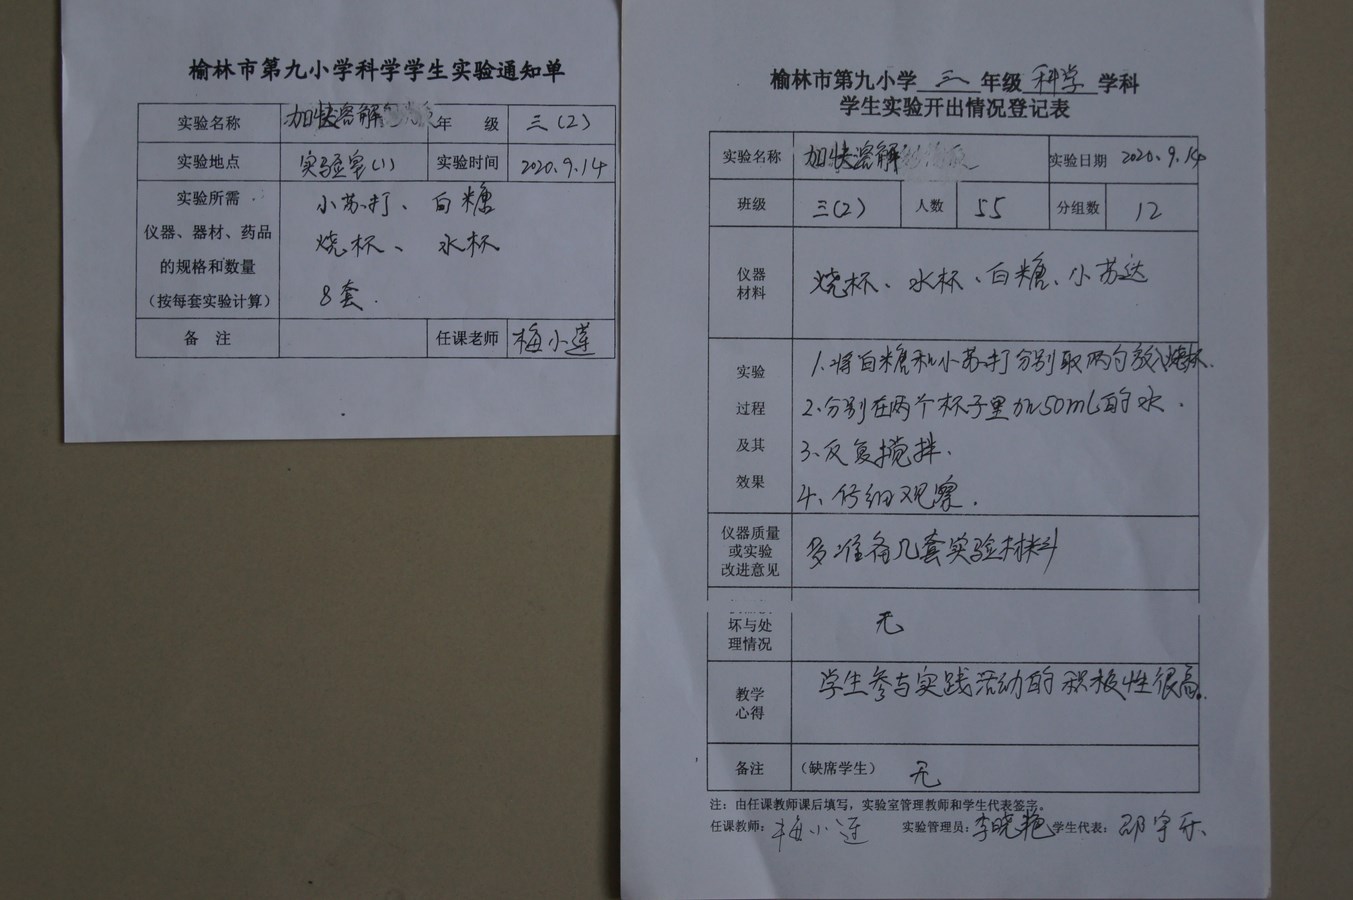 榆林市第九小学科学学生实验通知单
实验名称 加快溶解 年 级 三(2)
实验地点 实验室(1) 实验时间 2020.9.14
实验所需
仪器、器材、药品
的规格和数量
(按每套实验计算)
小苏打、白糖
烧杯、水杯
8套.
备 注 任课老师 梅小莲
榆林市第九小学 三 年级 科学 学科
学生实验开出情况登记表
实验名称 加快溶解 实验日期 2020.9.14
班级 三(2) 人数 55 分组数 12
仪器
材料
烧杯、水杯、白糖、小苏达
实验
过程
及其
效果
1.将白糖和小苏打分别取两勺放入烧杯.
2.分别在两个杯子里加50mL的水.
3.反复搅拌.
4.仔细观察.
仪器质量
或实验
改进意见
多准备几套实验材料
坏与处
理情况
无
教学
心得
学生参与实践活动的积极性很高.
备注 (缺席学生) 无
注:由任课教师课后填写,实验室管理教师和学生代表签字。
任课教师: 梅小莲 实验管理员: 李晓艳 学生代表: 邵宇乐